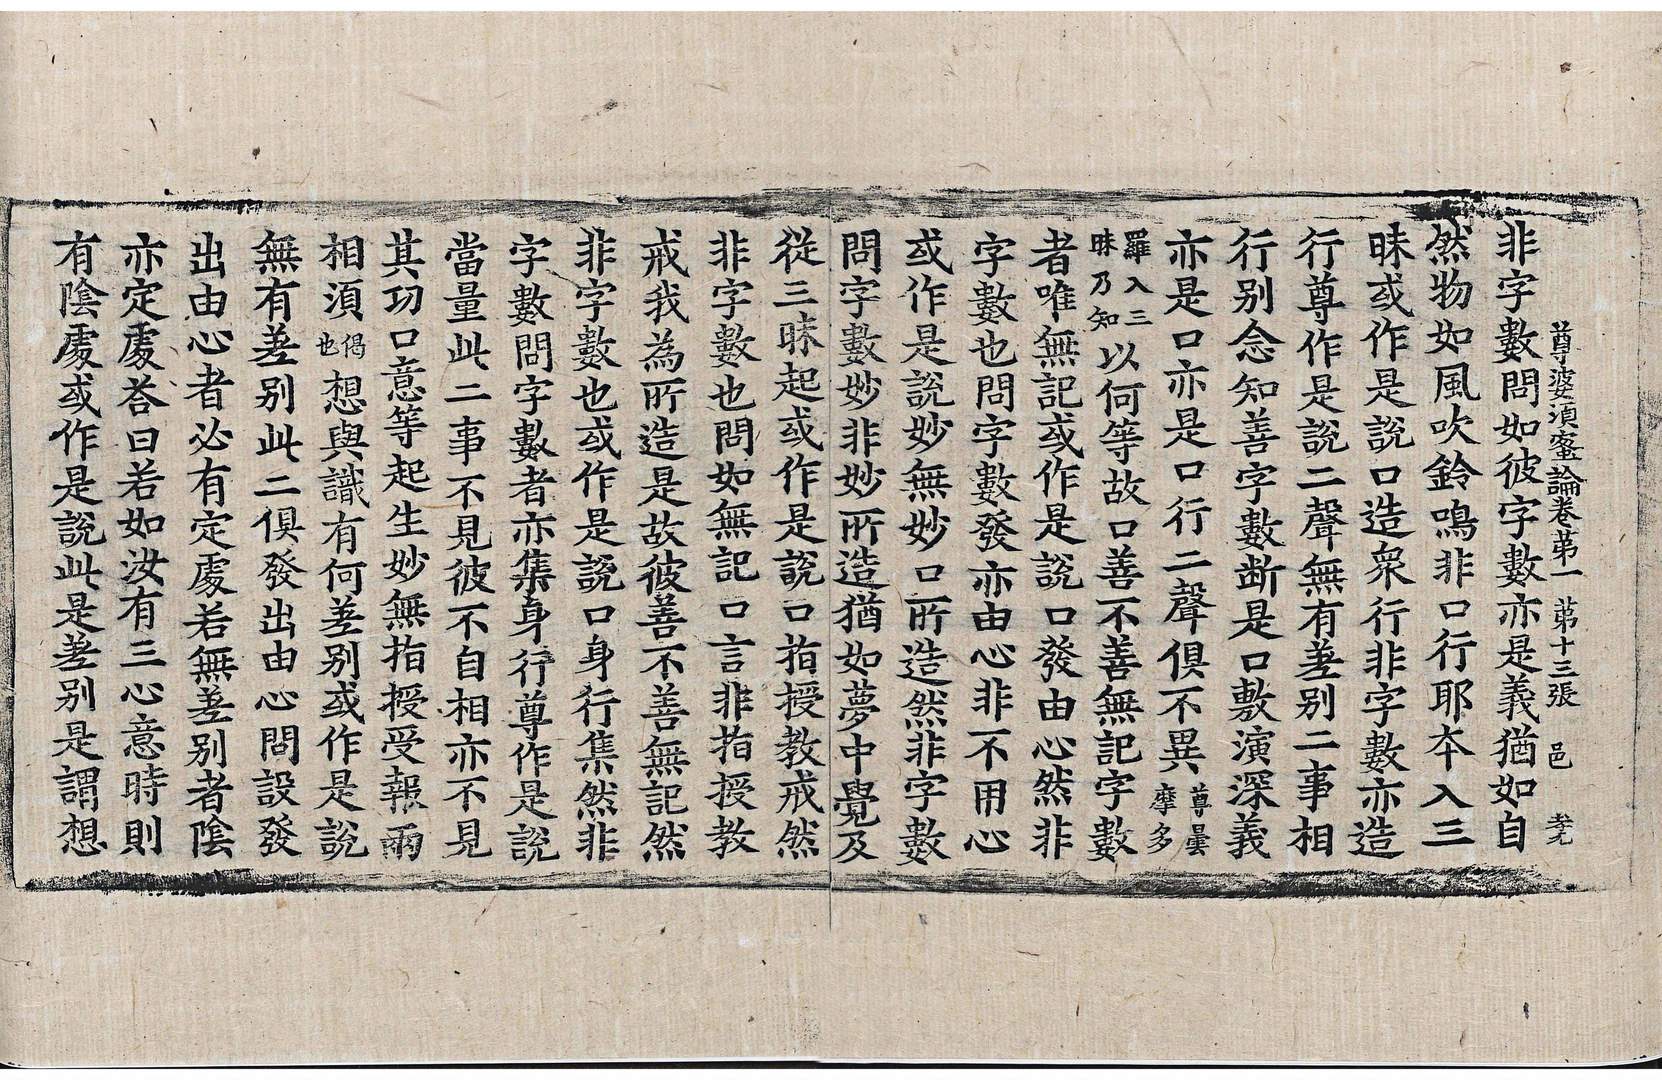 尊婆湏蜜論卷苐一 苐十三張 邑
非字數問如彼字數亦是義猶如自
然物如風吹鈴鳴非口行耶夲入三
昧或作是説口造衆行非字數亦造
行尊作是説二聲無有差别二事相
行别念知善字數断是口敷演深義
亦是口亦是口行二聲俱不異尊曇摩多
羅入三昧乃知以何等故口善不善無記字數
者唯無記或作是説口發由心然非
字數也問字數發亦由心非不用心
或作是説妙無妙口所造然非字數
問字數妙非妙所造猶如夢中覺及
從三昧起或作是説口指授教戒然
非字數也問如無記口言非指授教
戒我為所造是故彼善不善無記然
非字數也或作是説口身行集然非
字數問字數者亦集身行尊作是説
當量此二事不見彼不自相亦不見
其功口意等起生妙無指授受報兩
相湏偈也想與識有何差别或作是説
無有差别此二俱發出由心問設發
出由心者必有定處若無差别者陰
亦定處荅曰若如汝有三心意時則
有陰處或作是説此是差别是謂想